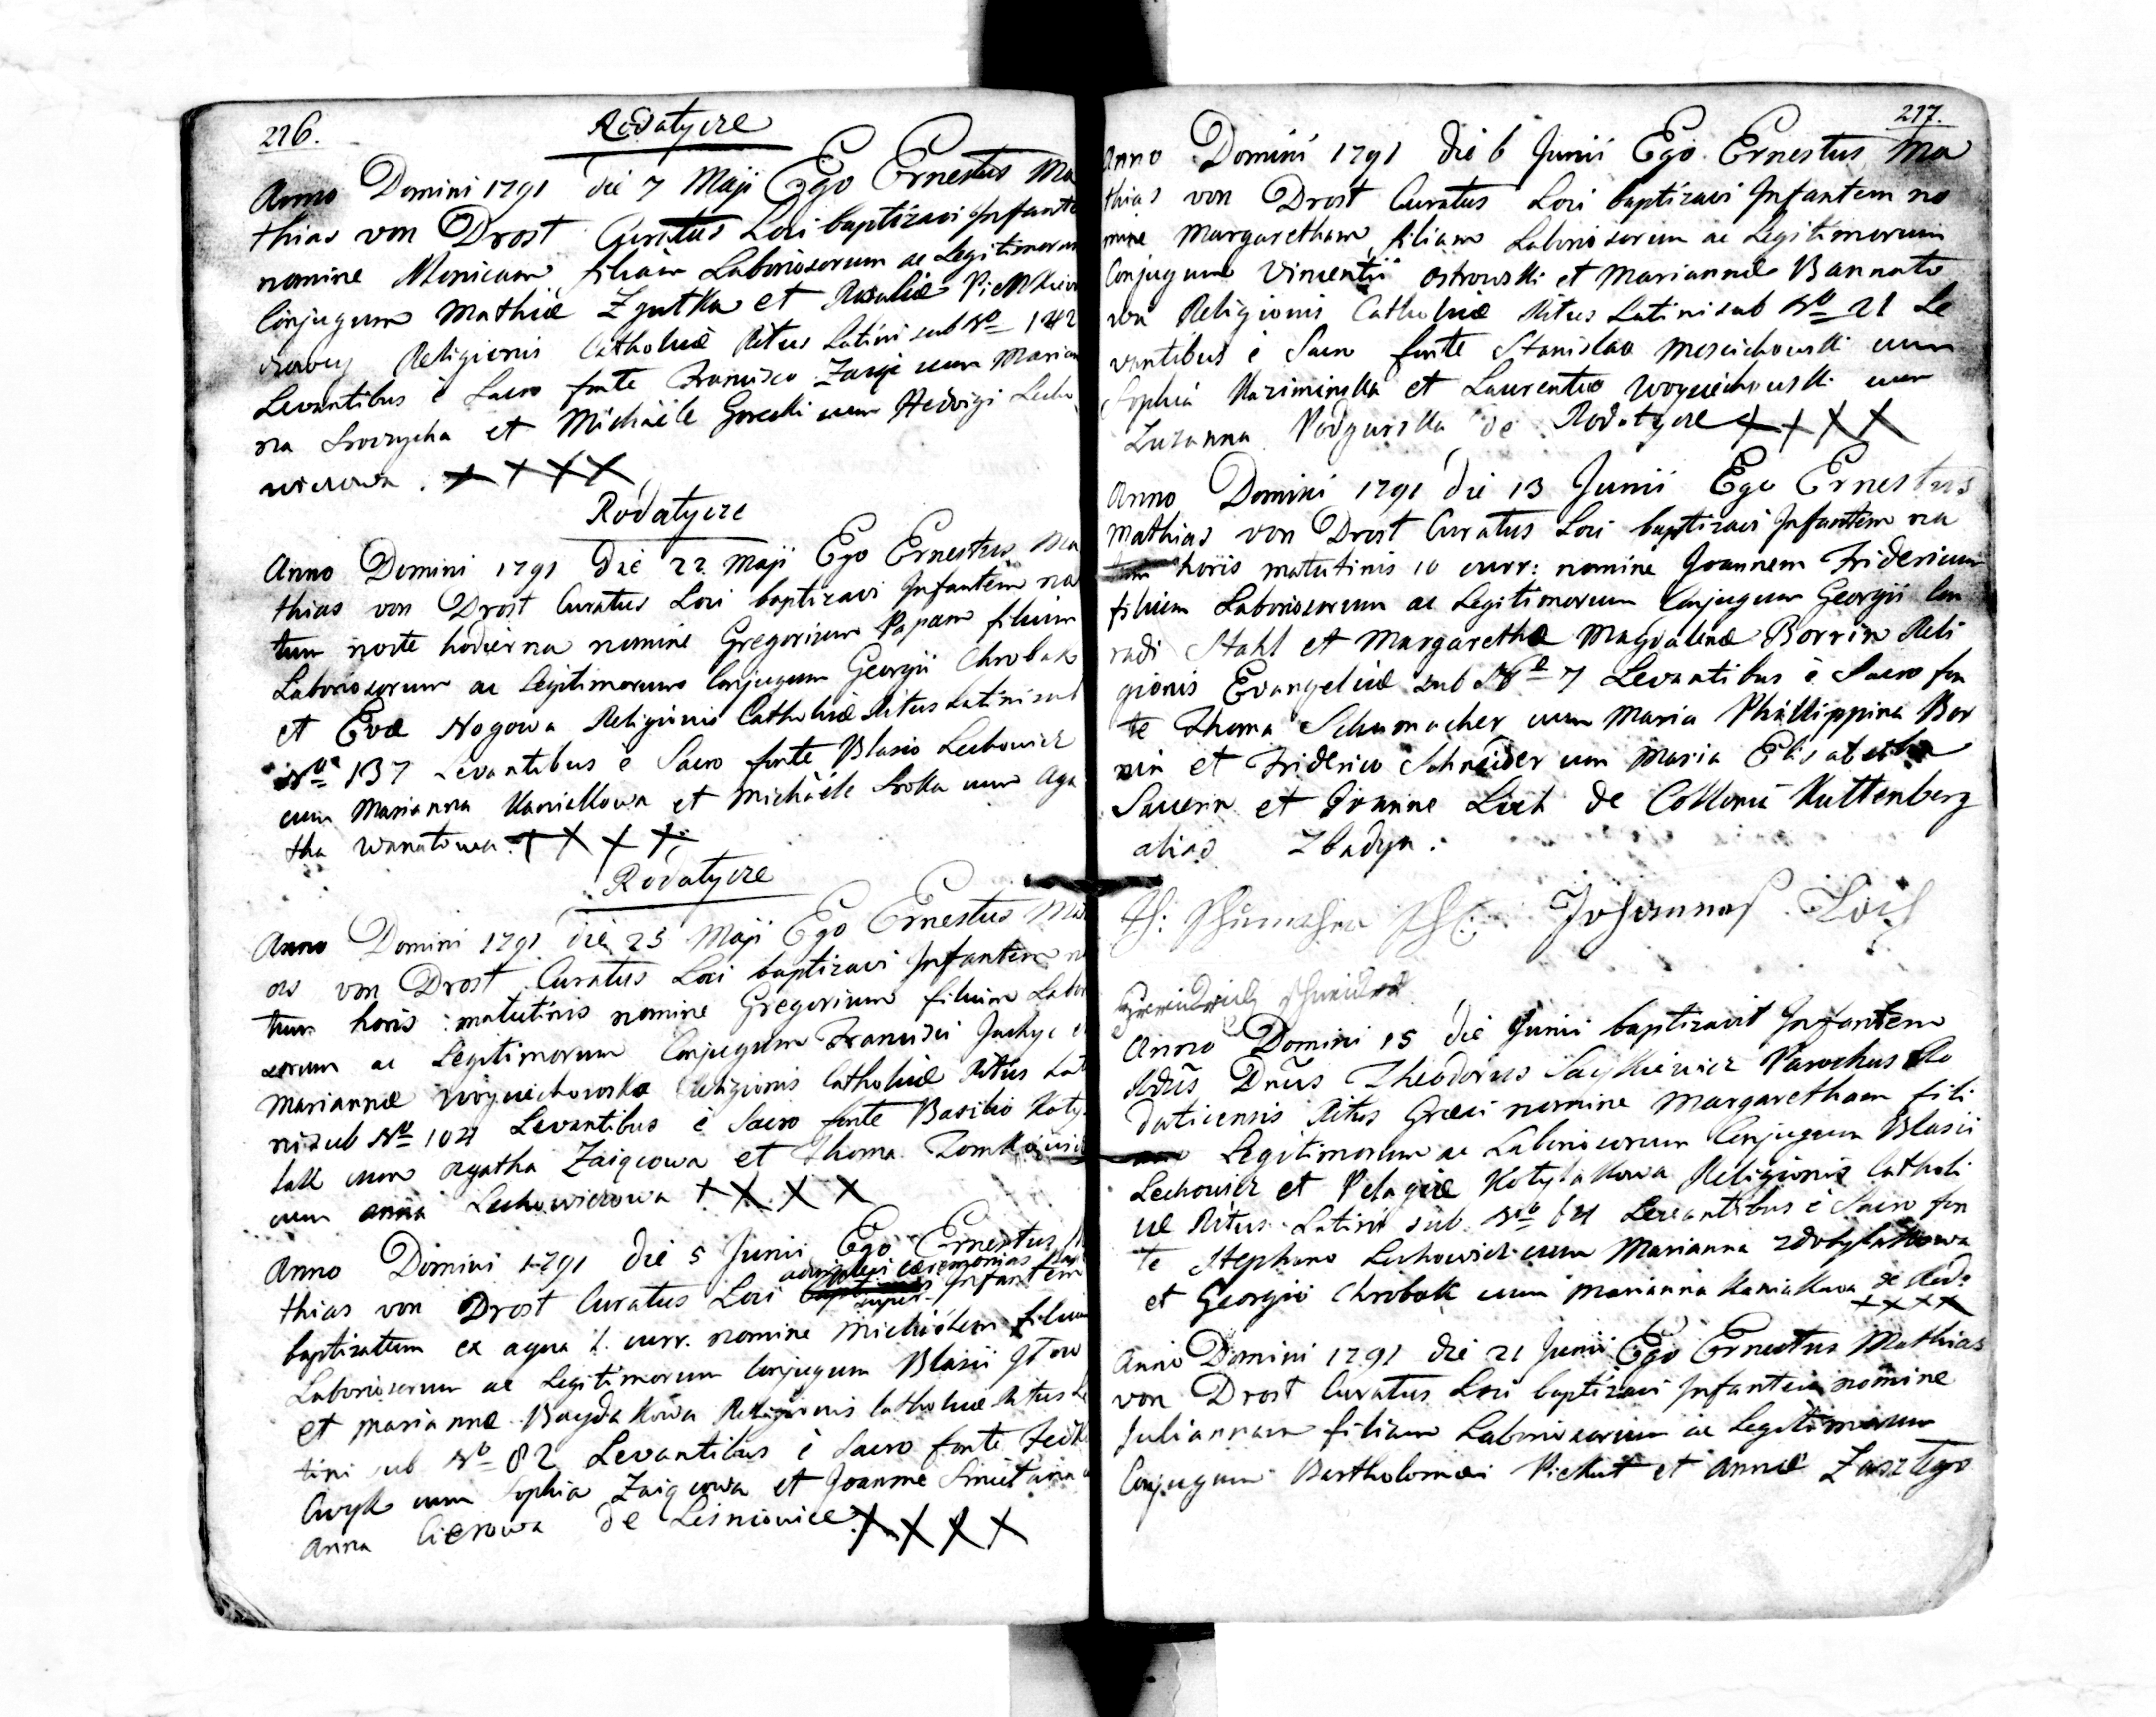 216.
Rodatycze
Anno Domini 1791 die 7 Maji Ego Ernestus Ma
thias von Drost Curatus Loci baptizavi Infante
nomine Monicam filiam Laboriosorum ac Legitimorum
Conjugum Mathiæ Zgutka et Rosaliæ
Religionis Catholicæ Ritus Latini sub Nº 142
Levantibus è Sacro fonte Francisco Zaiąc cum Marian
na et Michaële Gorecki cum Hedvigi Lecho
wiczowa. ××××
Rodatycze
Anno Domini 1791 die 22 Maji Ego Ernestus Ma
thias von Drost Curatus Loci baptizavi Infantem na
tum nocte hodierna nomine Gregorium Papam filium
Laboriosorum ac Legitimorum Conjugum Georgii Chrobak
et Evæ Nogowa Religionis Catholicæ Ritus Latini sub
Nº 137 Levantibus è Sacro fonte Blasio Lechowicz
cum Marianna Kaniakowa et Michaële Sroka cum Aga
tha Wanatowa. ××××
Rodatycze
Anno Domini 1791 die 25 Maji Ego Ernestus Ma
as von Drost Curatus Loci baptizavi Infantem na
tum horis matutinis nomine Gregorium filium Labor
sorum ac Legitimorum Conjugum Francisci
Mariannæ Woyciechowska Religionis Catholicæ Ritus Lat
ni sub Nº 104 Levantibus è Sacro fonte Basilio Koty
lak cum Agatha Zaiącowa et Thoma
cum Anna Lechowiczowa ××××
Anno Domini 1791 die 5 Junii Ego Ernestus Ma
adimplevi cæremonias
thias von Drost Curatus Loci super Infantem
baptizatum ex aqua 1. curr. nomine Michaëlem filium
Laboriosorum ac Legitimorum Conjugum Blasii
et Mariannæ Baydakowa Religionis Catholicæ Ritus La
tini sub Nº 82 Levantibus è Sacro fonte
cum Sophia Zaiącowa et Joanne Smietana
Anna de Lesniowice ××××
217.
Anno Domini 1791 die 6 Junii Ego Ernestus Ma
thias von Drost Curatus Loci baptizavi Infantem no
mine Margaretham filiam Laboriosorum ac Legitimorum
Conjugum Vincentii Ostrowski et Mariannæ Bannato
wa Religionis Catholicæ Ritus Latini sub Nº 21 Le
vantibus è Sacro fonte Stanislao Moscichowski cum
Sophia Kaziminska et Laurentio Woyciechowski cum
Zuzanna Podgurska de Rodatycze ××××
Anno Domini 1791 die 13 Junii Ego Ernestus
Mathias von Drost Curatus Loci baptizavi Infantem na
tum horis matutinis 10 curr: nomine Joannem Fridericum
filium Laboriosorum ac Legitimorum Conjugum Georgii Con
radi Stahl et Margarethæ Magdalenæ Borrin Reli
gionis Evangelicæ sub Nº 7 Levantibus è Sacro fon
te Thoma Schumacher cum Maria Phillippina Bor
rin et Friderico Schneider cum Maria Elisabetha
Sauerin et Joanne Loch de Collonie Kuttenberg
alias Zbadyn.
Johannes Loch
Anno Domini 15 die Junii baptizavit Infantem
Rdus Dnus Theodorus Parochus Ro
daticensis Ritus Græci nomine Margaretham fili
am Legitimorum ac Laboriosorum Conjugum Blasii
Lechowicz et Pelagiæ Kotylakowa Religionis Catholi
cæ Ritus Latini sub Nº 64 Levantibus è Sacro fon
te Stephano Lechowicz cum Marianna Zdobylakowa
et Georgio Chrobak cum Marianna Kaniakowa de Rod:
××××
Anno Domini 1791 die 21 Junii Ego Ernestus Mathias
von Drost Curatus Loci baptizavi Infantem nomine
Juliannam filiam Laboriosorum ac Legitimorum
Conjugum Bartholomæi Piekut et Annæ